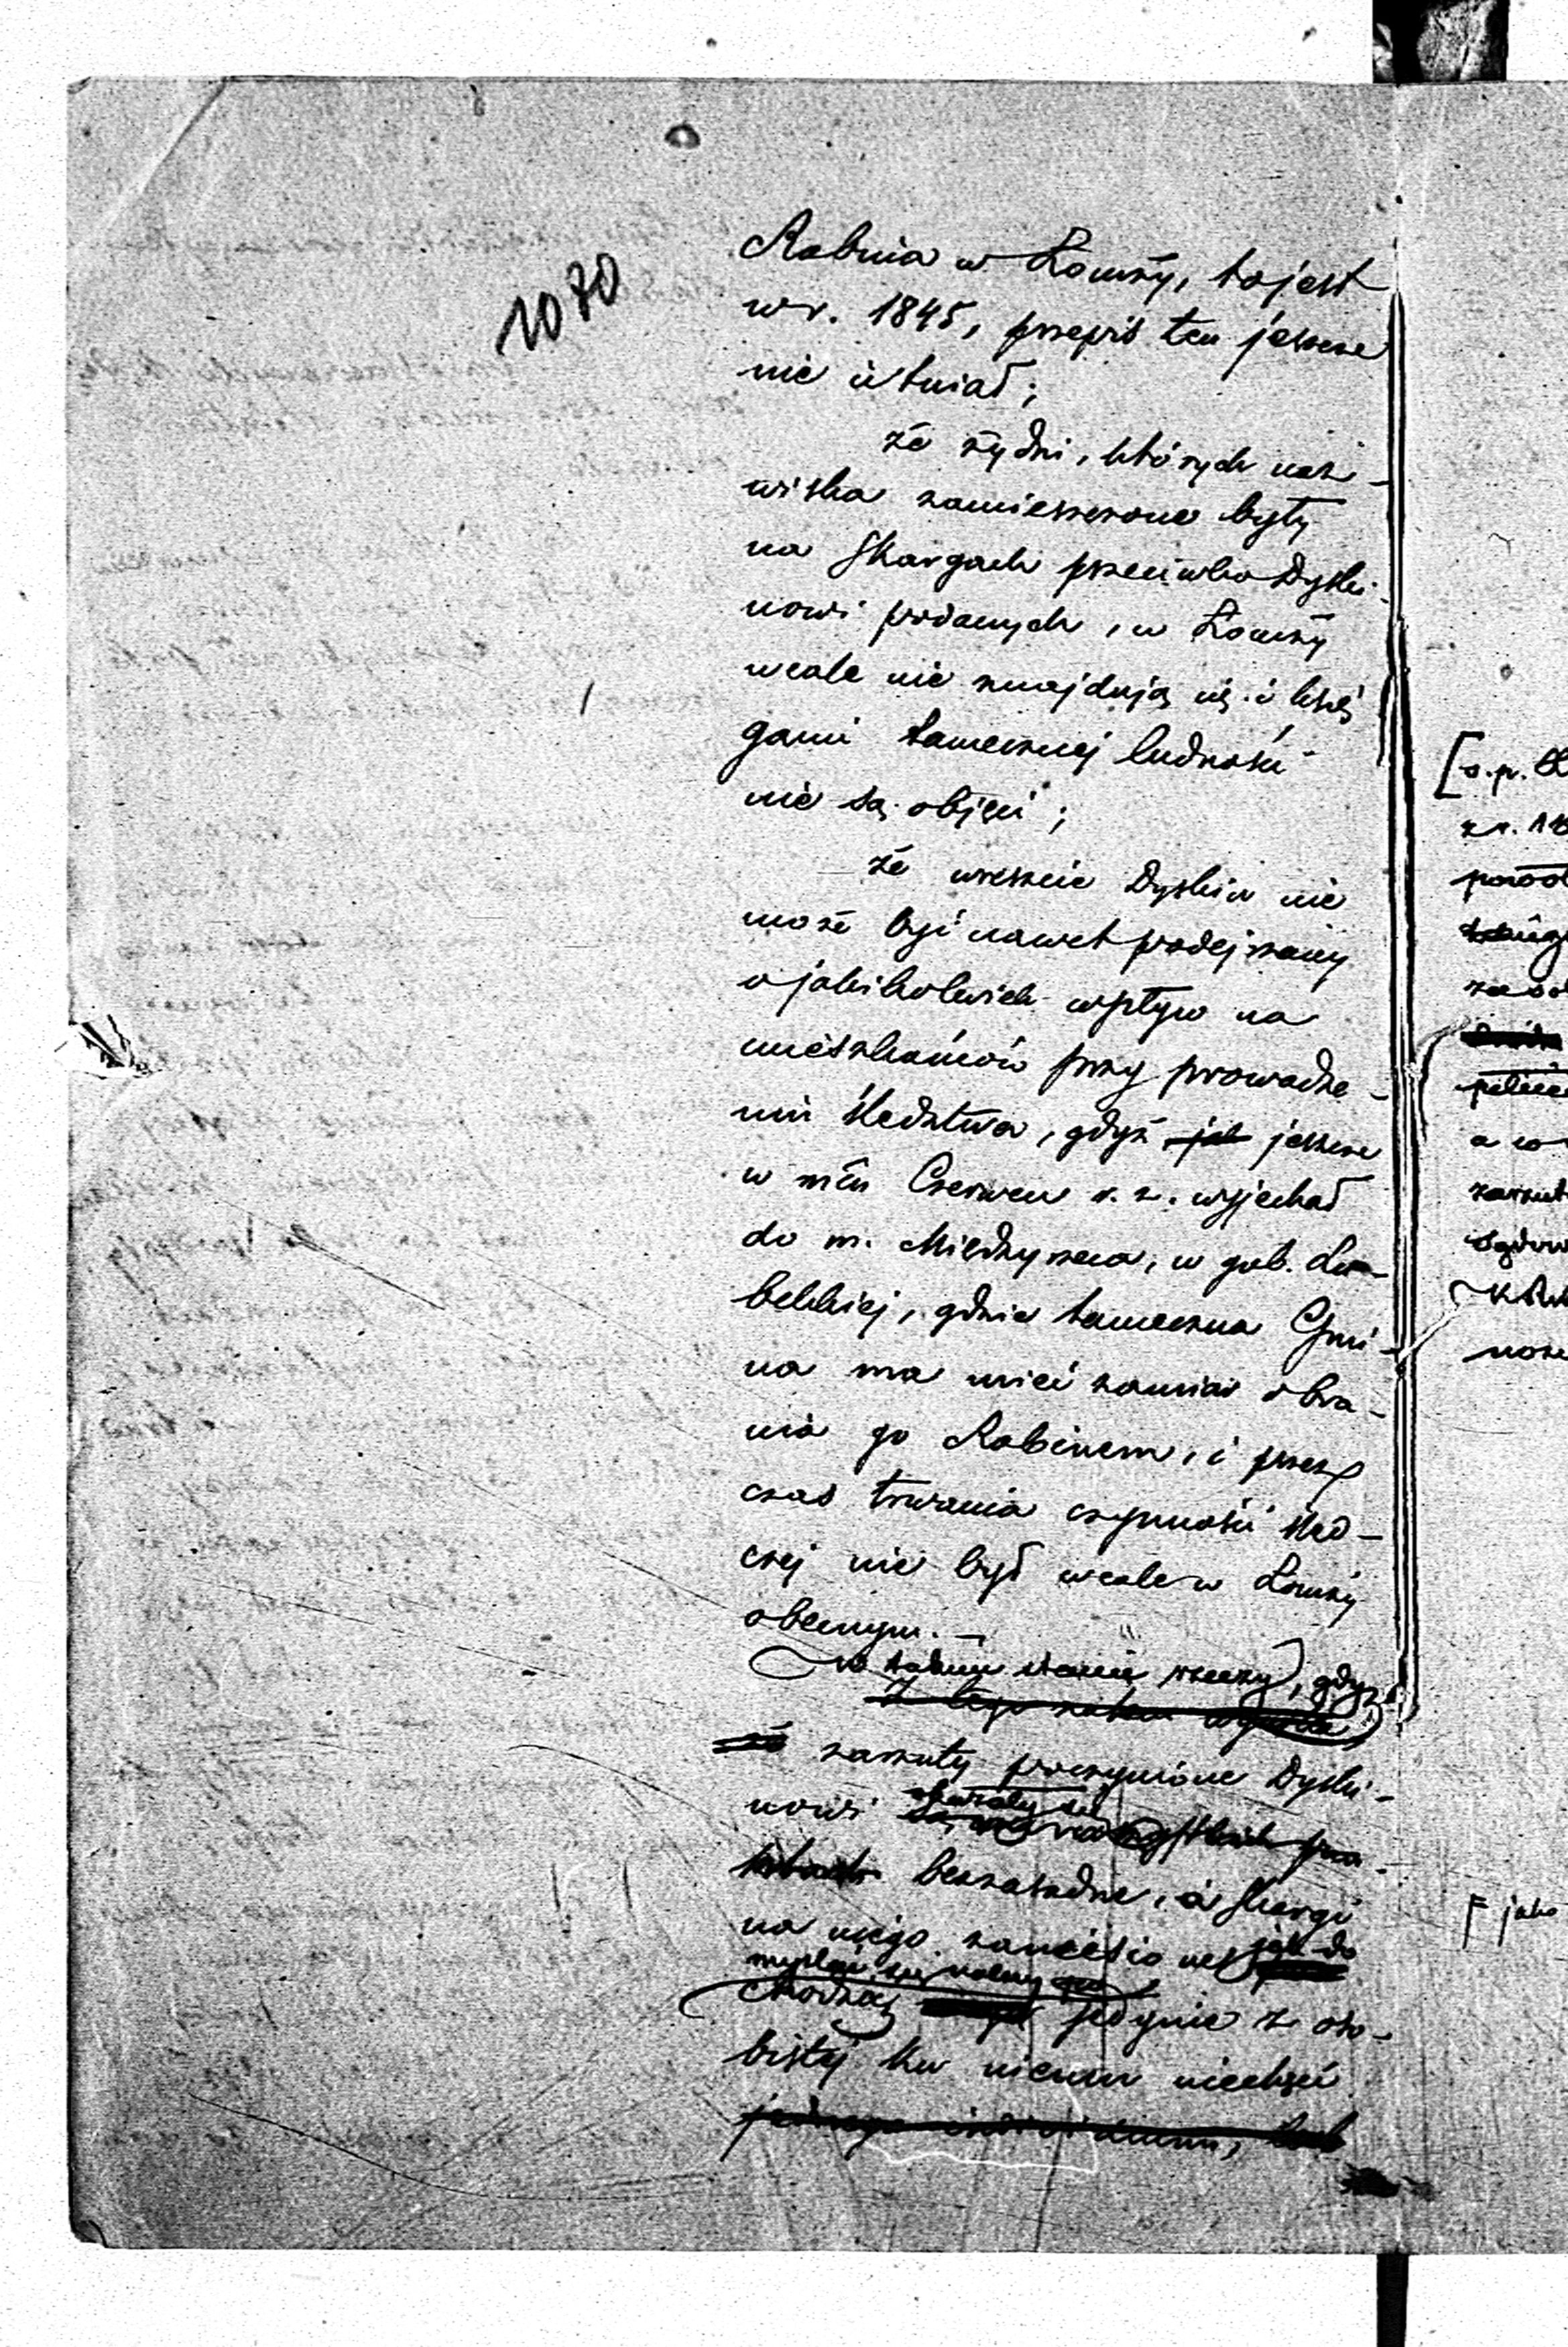 1080
Rabina w Łomży, to jest
w r. 1845, przepis ten jeszcze
nie istniał;
że żydzi, których naz-
wiska zamieszczone były
na skargach przeciwko Dyski-
nowi podanych, w Łomży
wcale nie znajdują się i księ
gami tamecznej ludności
nie są objęci;
że wreszcie Dyskin nie
może być nawet podejrzany
o jakikolwiek wpływ na
mieszkańców przy prowadze-
niu śledztwa, gdyż jak jeszcze
w mcu Czerwcu r. z. wyjechał
do m. Międzyrzeca, w gub. Lu-
belskiej, gdzie tameczna Gmi-
na ma mieć zamiar obra-
nia go Rabinem, i przez
czas trwania czynności śled-
czej nie był wcale w Łomży
obecnym. —
w takim stanie rzeczy, gdy
Z tego zatem
że zarzuty poczynione Dyski-
nowi okazały się
bezzasadne, a skargi
na niego zaniesione jak do
myślać się należy
chodzą jedynie z oso-
bistej ku niemu niechęci
jednego individuum,
[s.p.
a w
F jako